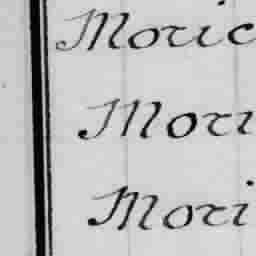 Moric
Mori
Mori